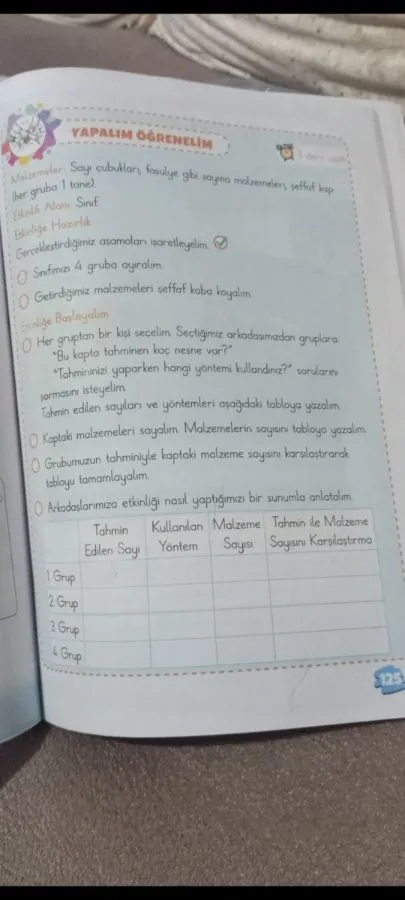 YAPALIM ÖĞRENELİM
1 ders saati
Malzemeler: Sayı çubukları, fasulye gibi sayma malzemeleri, şeffaf kap
(her gruba 1 tane).
Etkinlik Alanı: Sınıf
Etkinliğe Hazırlık
Gerçekleştirdiğimiz aşamaları işaretleyelim.
Sınıfımızı 4 gruba ayıralım.
Getirdiğimiz malzemeleri şeffaf kaba koyalım.
Etkinliğe Başlayalım
Her gruptan bir kişi seçelim. Seçtiğimiz arkadaşımızdan gruplara:
"Bu kapta tahminen kaç nesne var?"
"Tahmininizi yaparken hangi yöntemi kullandınız?" sorularını
sormasını isteyelim.
Tahmin edilen sayıları ve yöntemleri aşağıdaki tabloya yazalım.
Kaptaki malzemeleri sayalım. Malzemelerin sayısını tabloya yazalım.
Grubumuzun tahminiyle kaptaki malzeme sayısını karşılaştırarak
tabloyu tamamlayalım.
Arkadaşlarımıza etkinliği nasıl yaptığımızı bir sunumla anlatalım.
Tahmin Edilen Sayı
Kullanılan Yöntem
Malzeme Sayısı
Tahmin ile Malzeme Sayısını Karşılaştırma
1. Grup
2. Grup
3. Grup
4. Grup
125